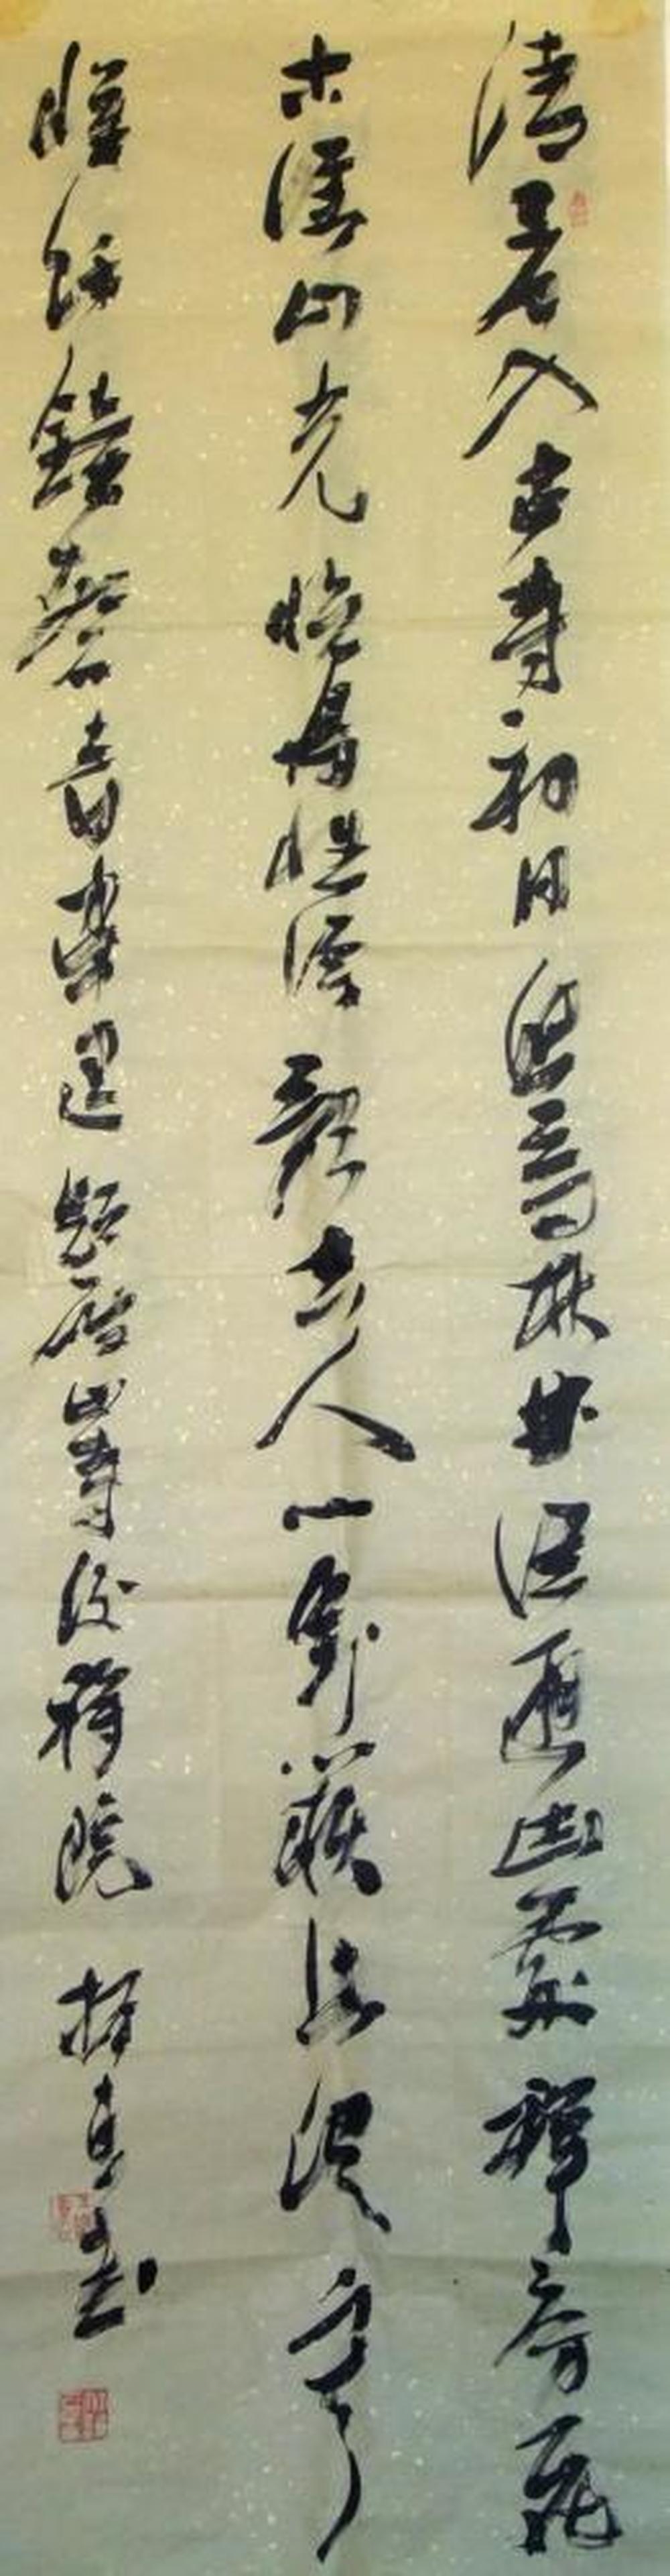 清晨入古寺初日照高林曲徑通幽處禪房花
木深山光悅鳥性潭影空人心萬籟此俱寂
惟餘鐘磬音常建題破山寺後禪院书